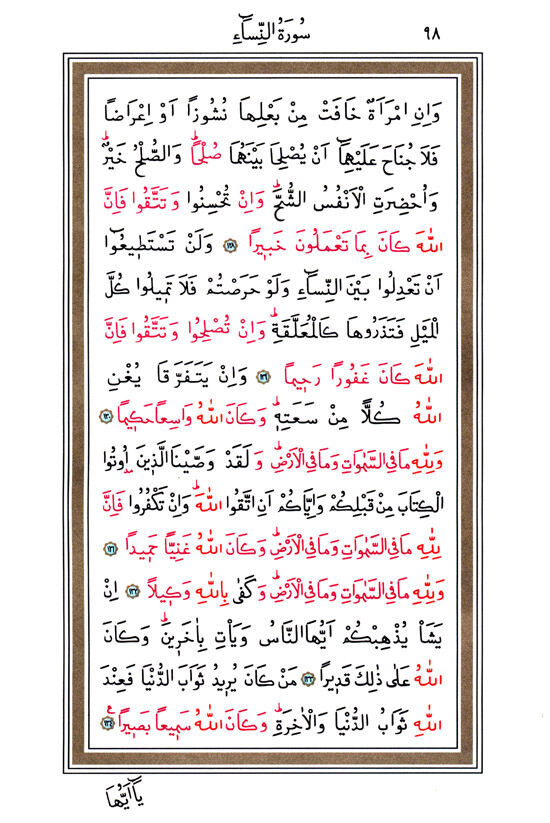 ٩٨ سُورَةُ النِّسَٓاءِ
وَاِنِ امْرَاَةٌ خَافَتْ مِنْ بَعْلِهَا نُشُوزًا اَوْ اِعْرَاضًا
فَلَا جُنَاحَ عَلَيْهِمَٓا اَنْ يُصْلِحَا بَيْنَهُمَا صُلْحًاۜ وَالصُّلْحُ خَيْرٌۜ
وَاُحْضِرَتِ الْاَنْفُسُ الشُّحَّۜ وَاِنْ تُحْسِنُوا وَتَتَّقُوا فَاِنَّ
اللّٰهَ كَانَ بِمَا تَعْمَلُونَ خَبٖيرًا ﴿١٢٨﴾ وَلَنْ تَسْتَطٖيعُٓوا
اَنْ تَعْدِلُوا بَيْنَ النِّسَٓاءِ وَلَوْ حَرَصْتُمْ فَلَا تَمٖيلُوا كُلَّ
الْمَيْلِ فَتَذَرُوهَا كَالْمُعَلَّقَةِۜ وَاِنْ تُصْلِحُوا وَتَتَّقُوا فَاِنَّ
اللّٰهَ كَانَ غَفُورًا رَحٖيمًا ﴿١٢٩﴾ وَاِنْ يَتَفَرَّقَا يُغْنِ
اللّٰهُ كُلًّا مِنْ سَعَتِهٖۜ وَكَانَ اللّٰهُ وَاسِعًا حَكٖيمًا ﴿١٣٠﴾
وَلِلّٰهِ مَا فِي السَّمٰوَاتِ وَمَا فِي الْاَرْضِۜ وَلَقَدْ وَصَّيْنَا الَّذٖينَ اُوتُوا
الْكِتَابَ مِنْ قَبْلِكُمْ وَاِيَّاكُمْ اَنِ اتَّقُوا اللّٰهَۜ وَاِنْ تَكْفُرُوا فَاِنَّ
لِلّٰهِ مَا فِي السَّمٰوَاتِ وَمَا فِي الْاَرْضِۜ وَكَانَ اللّٰهُ غَنِيًّا حَمٖيدًا ﴿١٣١﴾
وَلِلّٰهِ مَا فِي السَّمٰوَاتِ وَمَا فِي الْاَرْضِۜ وَكَفٰى بِاللّٰهِ وَكٖيلًا ﴿١٣٢﴾ اِنْ
يَشَأْ يُذْهِبْكُمْ اَيُّهَا النَّاسُ وَيَأْتِ بِاٰخَرٖينَۜ وَكَانَ
اللّٰهُ عَلٰى ذٰلِكَ قَدٖيرًا ﴿١٣٣﴾ مَنْ كَانَ يُرٖيدُ ثَوَابَ الدُّنْيَا فَعِنْدَ
اللّٰهِ ثَوَابُ الدُّنْيَا وَالْاٰخِرَةِۜ وَكَانَ اللّٰهُ سَمٖيعًا بَصٖيرًاࣖ ﴿١٣٤﴾
يَٓا اَيُّهَا